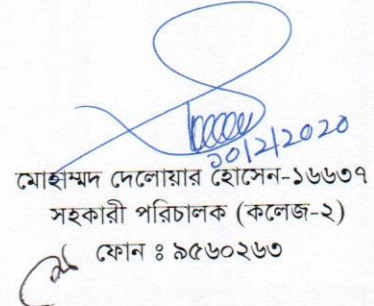 ১০/২/2020
মোহাম্মদ দেলোয়ার হোসেন-১৬৬৩৭
সহকারী পরিচালক (কলেজ-২)
ফোন ঃ ৯৫৬০২৬৩